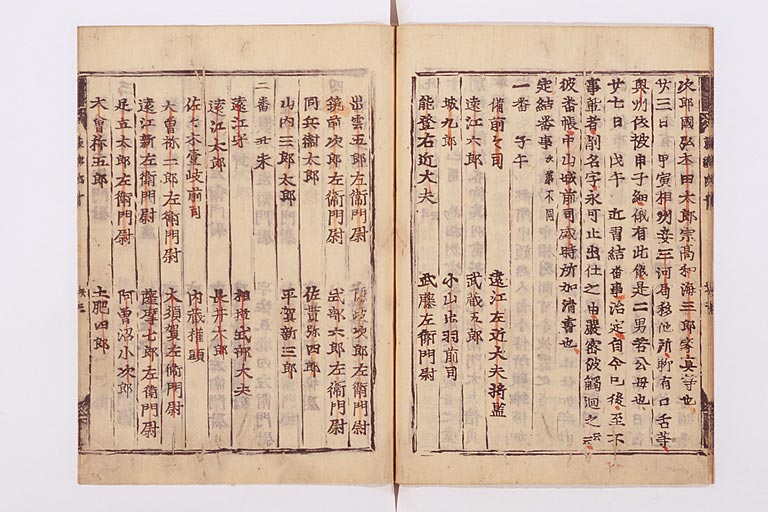 次郎國弘本田太郎宗高和海三郎家真等也
廿三日 甲寅相州妾三河局移他所聊有口舌等
奥州依被申子細俄有此儀是二男若公母也
廿七日 戊午 近習結番事治定自今已後至不
事輩者削名字永可止出仕之由嚴密被觸廻之云云
彼番帳中山城前司盛時所加清書也
定結番事 次第不同
一番 子午
備前々司 遠江左近大夫将監
遠江六郎 武蔵五郎
城九郎 小山出羽前司
能登右近大夫 武藤左衛門尉
出雲五郎左衛門尉 次郎左衛門尉
筑前次郎左衛門尉 式部六郎左衛門尉
同兵衛太郎 佐貫弥四郎
山内三郎太郎 平賀新三郎
二番 丑未
遠江守 相模式部大夫
遠江太郎 長井太郎
佐々木壹岐前司 内蔵權頭
大曾祢二郎左衛門尉 大須賀左衛門尉
遠江新左衛門尉 薩摩七郎左衛門尉
足立太郎左衛門尉 阿曽沼小次郎
大曾祢五郎 土肥四郎